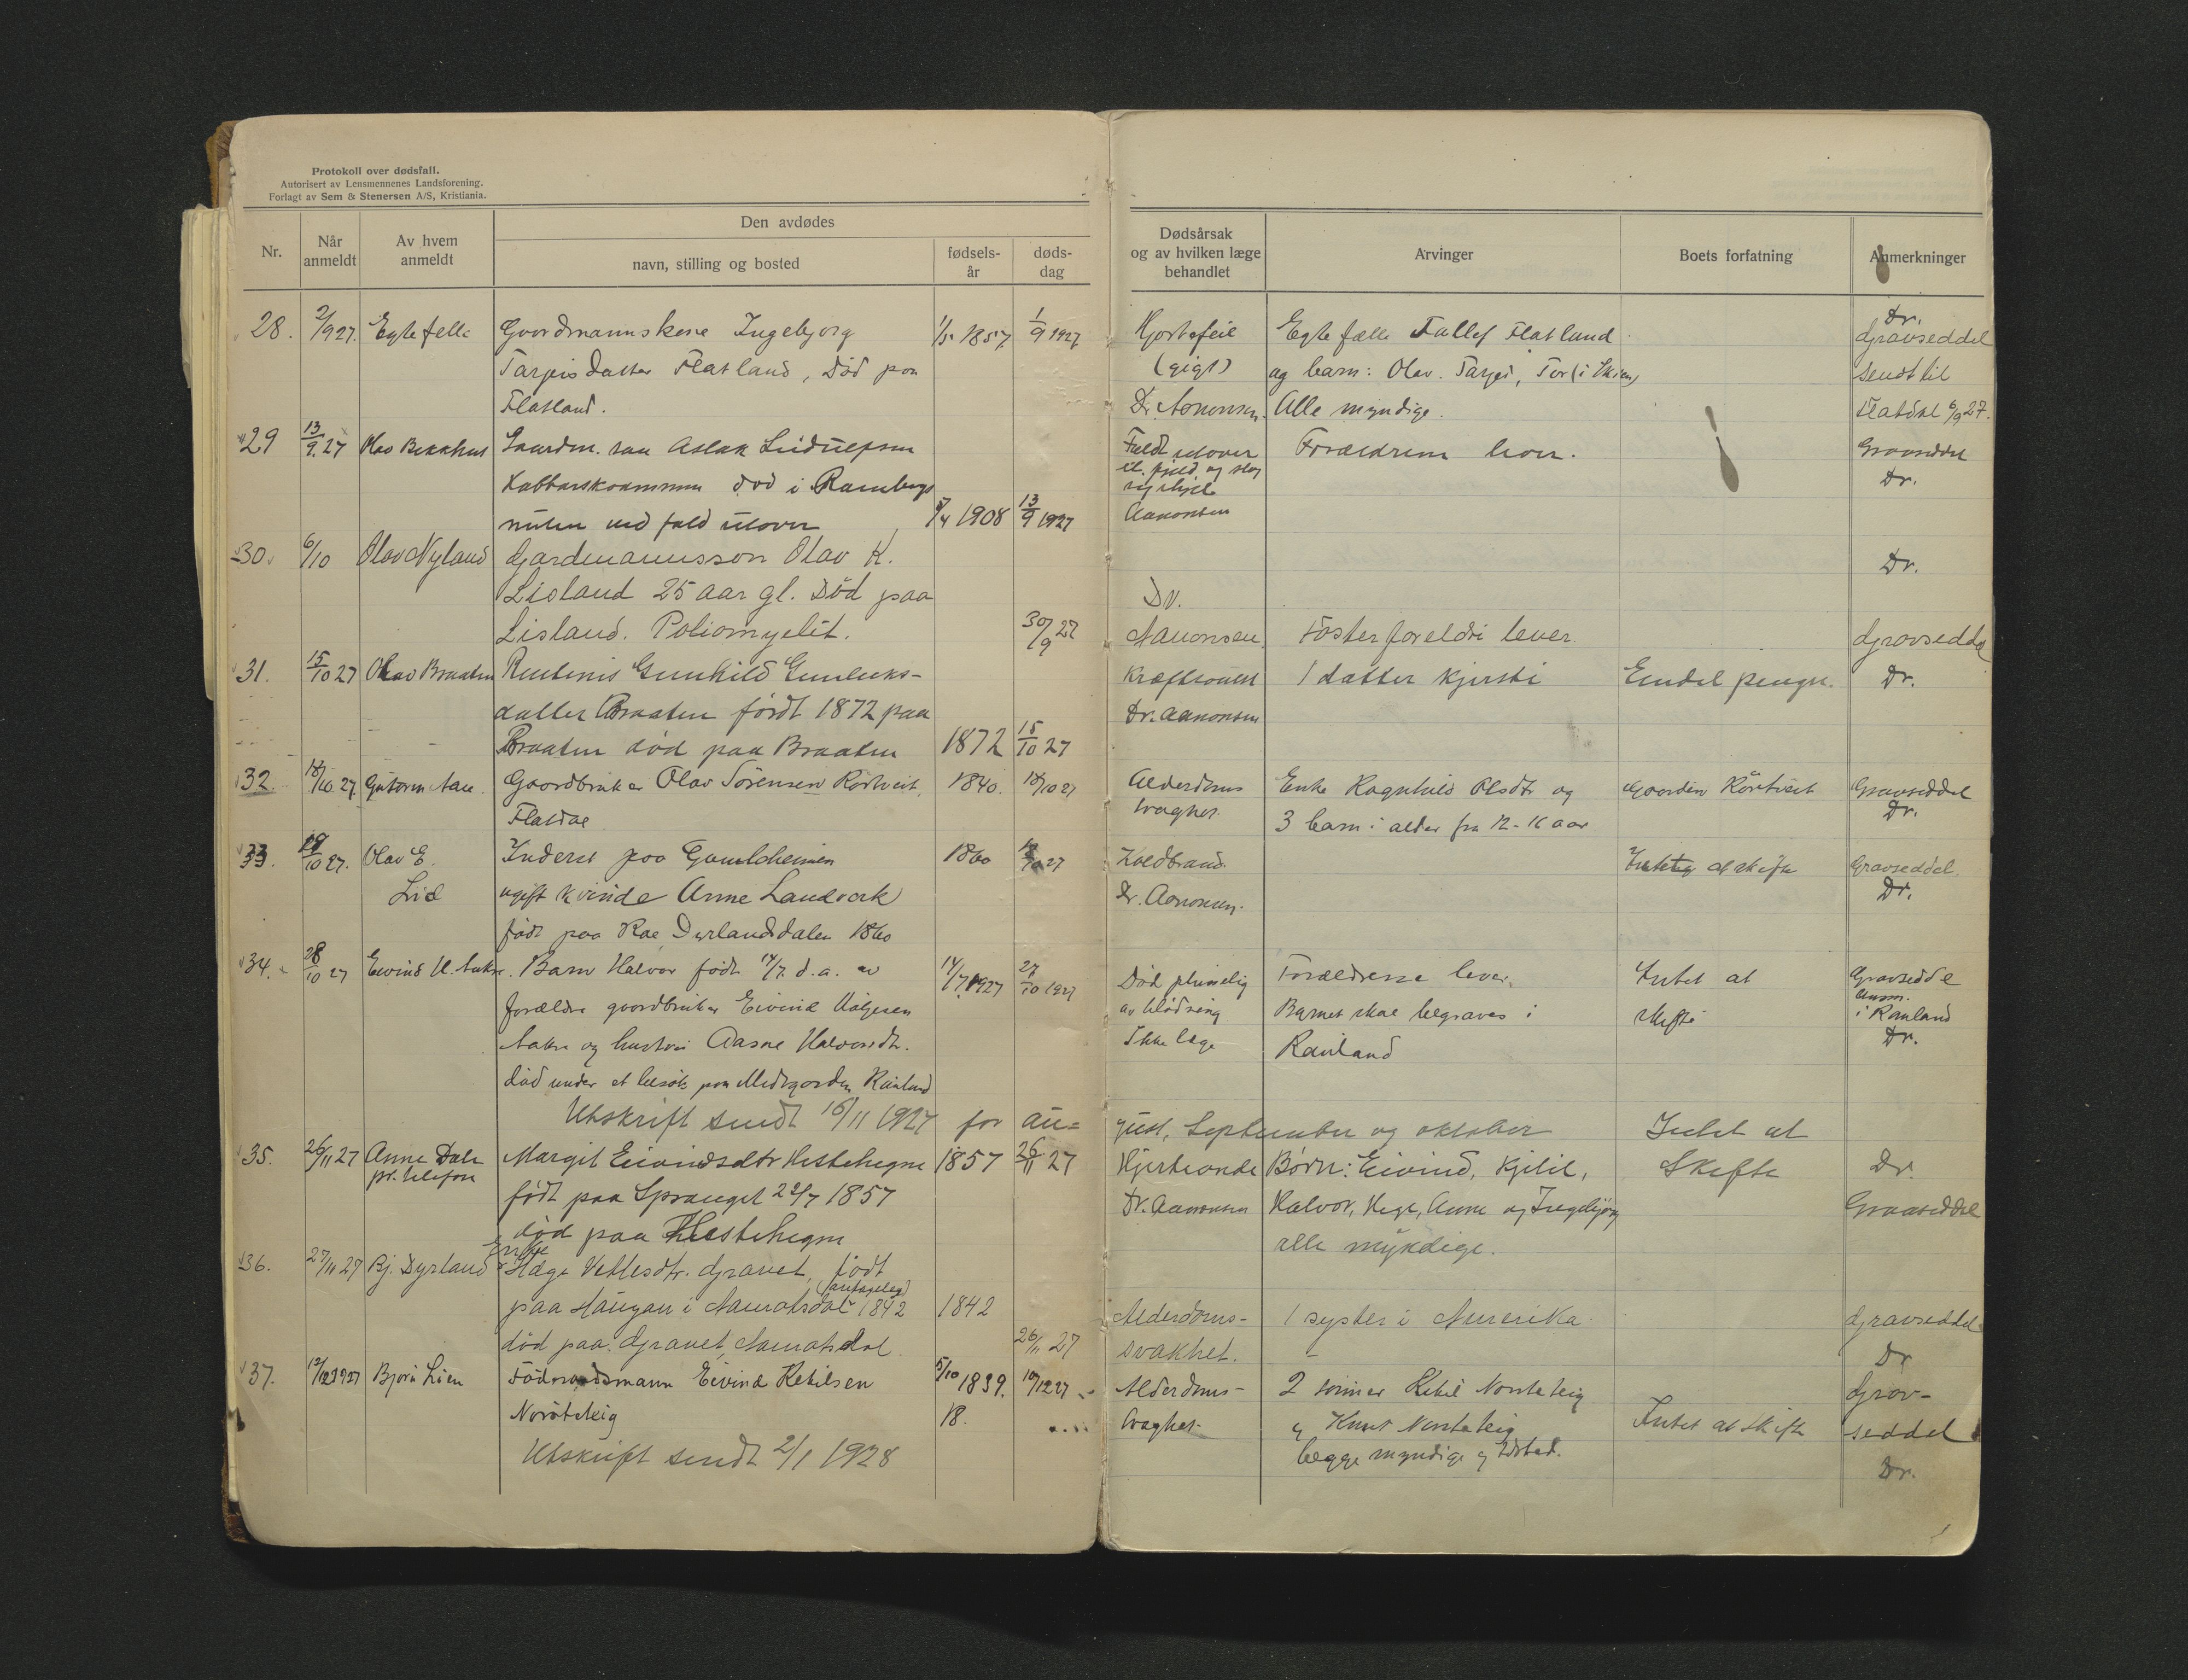 Protokoll over dødsfall.
Autorisert av Lensmennenes Landsforening.
Forlagt av Sem & Stenersen A/S, Kristiania.
Nr.
Når anmeldt
Av hvem anmeldt
Den avdødes
navn, stilling og bosted
fødsels-år
døds-dag
Dødsårsak og av hvilken læge behandlet
Arvinger
Boets forfatning
Anmerkninger
28. 2/9 27. Egtefelle Goordmannskone Ingebjorg 1/5 1857. 1/9 1927 Hjertefeil Egtefælle Tallef Flatland Dr. Gravseddel
Targeisdatter Flatland, död paa (gigt) og barn: Olav. Targei, Tor (i Skien) sendt til
Flatland. Dr. Aanonsen. Alle myndige. Flatdal 6/9 27.
29 13/9 27 Olav Bekkhus Gaardm. søn Aslak Leidulfsen Faldt utover Forældrene lever. Gravseddel
död i Rambergs et fjeld og slog Dr.
nuten ved fald utover 1908 13/9 1927 Aanonsen
30. 6/10 Olav Nyland Gardmannsson Olav K. Dr.
Lisland 25 aar gl. Död paa Dr.
Lisland. Poliomyelit. 30/9 27 Aanonsen. Fosterforeldri lever. Gravseddel
31. 15/10 27 Olav Braaten Gunhild Gunleiks- Kræftsvulst 1 datter Kjersti Endel penger. Dr.
datter Braaten födt 1872 paa Dr. Aanonsen
Braaten död paa Braaten 1872 15/10 27
32. 18/10 27. Gutorm Aase. Goordbruker Olav Sörensen Rörtveit, 1840. 18/10 27 Alderdoms Enke Ragnhild Olsdtr og Goorden Rörtveit Gravseddel
Flatdal svaghet. 3 barn i alder fra 12-16 aar Dr.
33. 19/10 27. Olav E. Inderst paa Gamleheimen 1860 Koldbrand. Intet at skifte Gravseddel.
Lid ugift kvinde Anne Landverk Dr. Aanonsen. Dr.
födt paa Rae Dyrlandsdalen 1860
34. 28/10 27 Eivind H. Aakre. Barn Halvor födt 14/7. d.a. av 14/7 1927 27/10 1927 Död plutselig Forældrene lever. Intet at Gravseddel
forældre goordbruker Eivind Aakre og hustru Aasne Halvorsdtr. av blödning Barnet skal begraves i skifte i Rauland
död under et besök paa Midtgarden Rauland Ikke læge Rauland Dr.
Utskrift sendt 16/11 1927 for au=gust, September og oktober
35. 26/11 27 Anne Dale Margit Eivindsdtr Hestehegne 1857 26/11 27 Hjerteonde Börn: Eivind, Kjetil, Intet at Skifte Dr.
pr. telefon födt paa Spranget 22/7 1857 Dr. Aanonsen Halvor, Hege, Anne og Ingebjörg Gravseddel
död paa Hestehegne alle myndige.
36. 27/11 27 Bj. Dyrland Enke Hæge Vetlesdtr. Gravet, födt
paa Haugan i Aamotsdal 1842 1842 Alderdoms- 1 syster i Amerika Gravseddel
död paa Gravet, Aamotsdal. 26/11 27 svakhet. Dr
37. 12/12 1927 Björn Lien Födraadsmann Eivind Ketilsen 5/10 1839. 10/12 27 Alderdoms- 2 sönner Ketil Norsteteig Grav-
18. svaghet. og Knut Norsteteig Intet at skifte seddel
Utskrift sendt 2/1 1928 begge myndige og Dr.